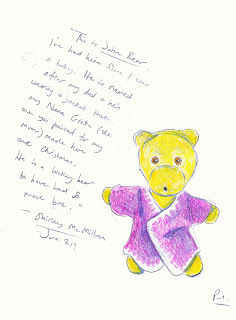 "This is John Bear.
I've had him since I was
a baby. He is named
after my dad & he's
wearing a jacket that
my Nana Greta (the
one you painted for my
mum) made him
one Christmas.
He is a lucky bear
to have had so
much love."
— Shirley McMillan
June 2019